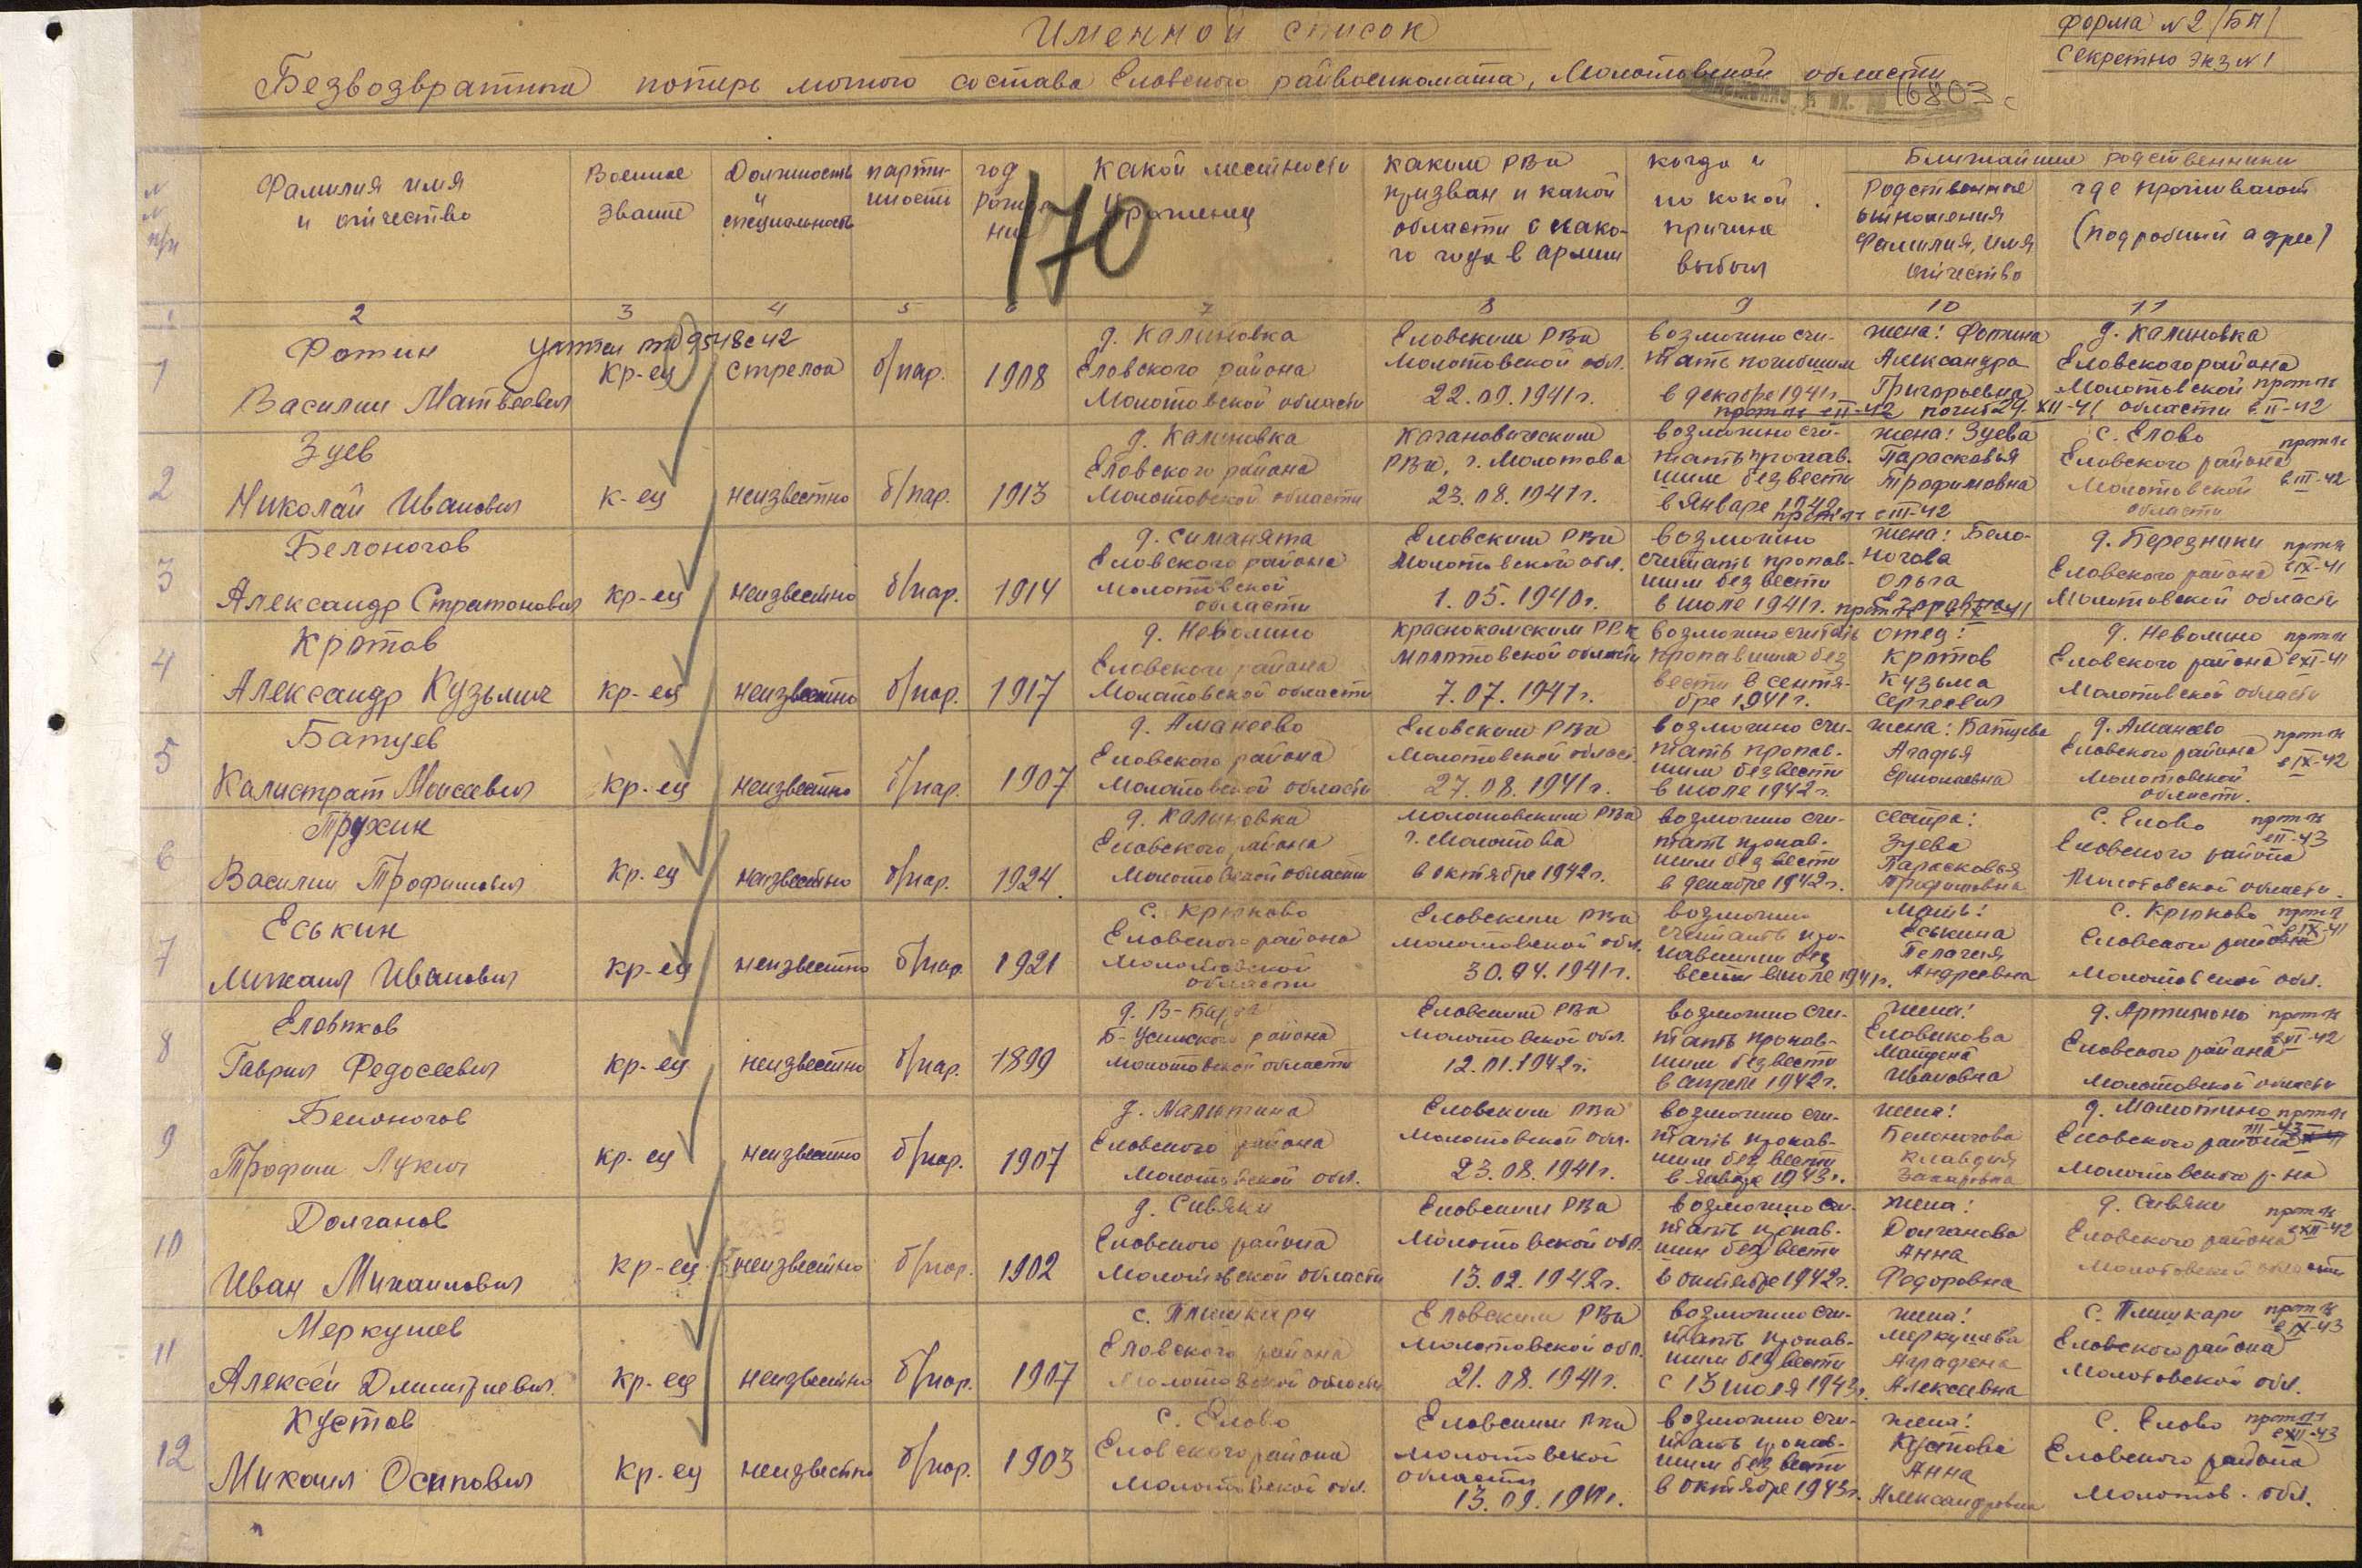 Именной список
форма №2 /БП/
Секретно экз №1
Безвозвратных потерь личного состава Еловского райвоенкомата, Молотовской области
16803с
170
№ № п/п
Фамилия имя и отчество
Военное звание
Должность и специальность
парти- йность
год рожде- ния
Какой местности уроженец
каким РВК призван и какой области с како- го года в армии
когда и по какой причине выбыл
Ближайшие родственники
Родственные отношения Фамилия, имя отчество
где проживают (подробный адрес)
1 2 3 4 5 6 7 8 9 10 11
1
Фотин
Василий Матвеевич
учтен 9548с42
кр-ец
стрелок
б/пар.
1908
д. Калиновка
Еловского района
Молотовской области
Еловским РВК
Молотовской обл.
22.09.1941г.
возможно счи-
тать погибшим
в декабре 1941г.
погиб 24.XII-41
жена: Фотина
Александра
Григорьевна
д. Калиновка
Еловского района
Молотовской
области с II-42
2
Зуев
Николай Иванович
к-ец
неизвестно
б/пар.
1913
д. Калиновка
Еловского района
Молотовской области
Кагановическим
РВК, г. Молотова
23.08.1941г.
возможно счи-
тать пропав-
шим без вести
в январе 1942
с III-42
жена: Зуева
Парасковья
Трофимовна
с. Елово
Еловского района
Молотовской с III-42
области
3
Белоногов
Александр Стратонович
кр-ец
неизвестно
б/пар.
1914
д. Симанята
Еловского района
Молотовской
области
Еловским РВК
Молотовской обл.
1.05.1940г.
возможно
считать пропав-
шим без вести
в июле 1941г.
жена: Бело-
ногова
Ольга
д. Березники
Еловского района с IX-41
Молотовской области
4
Кротов
Александр Кузьмич
кр-ец
неизвестно
б/пар.
1917
д. Неволино
Еловского района
Молотовской области
Краснокамским РВК
Молотовской области
7.07.1941г.
возможно считать
пропавшим без
вести в сентя-
бре 1941г.
отец:
Кротов
Кузьма
Сергеевич
д. Неволино
Еловского района с XI-41
Молотовской области
5
Батуев
Калистрат Моисеевич
кр-ец
неизвестно
б/пар.
1907
д. Аманеево
Еловского района
Молотовской области
Еловским РВК
Молотовской област.
27.08.1941г.
возможно счи-
тать пропав-
шим без вести
в июле 1942г.
жена: Батуева
Агафья
Ермолаевна
д. Аманеево
Еловского района с IX-42
Молотовской
области.
6
Трухин
Василий Трофимович
кр-ец
неизвестно
б/пар.
1924
д. Калиновка
Еловского района
Молотовской области
Молотовским РВК
г. Молотова
в октябре 1942г.
возможно счи-
тать пропав-
шим без вести
в декабре 1942г.
сестра:
Зуева
Парасковья
Трофимовна
с. Елово
Еловского района
Молотовской области.
7
Еськин
Михаил Иванович
кр-ец
неизвестно
б/пар.
1921
с. Крюково
Еловского района
Молотовской
области
Еловским РВК
Молотовской обл.
30.04.1941г.
возможно
считать про-
павшим без
вести в июле 1941г.
мать:
Еськина
Пелагея
Андреевна
с. Крюково
Еловского района
Молотовской обл.
8
Еловиков
Гаврил Федосеевич
кр-ец
неизвестно
б/пар.
1899
Б-Усинского района
Молотовской области
Еловским РВК
Молотовской обл.
12.01.1942г.
возможно счи-
тать пропав-
шим без вести
в апреле 1942г.
жена:
Еловикова
Матрена
Ивановна
Еловского района
Молотовской области
9
Белоногов
Трофим Лукич
кр-ец
неизвестно
б/пар.
1907
д. Малютина
Еловского района
Молотовской обл.
Еловским РВК
Молотовской обл.
23.08.1941г.
возможно счи-
тать пропав-
шим без вести
в январе 1943г.
жена:
Белоногова
Клавдия
Захаровна
Еловского района
Молотовского р-на
10
Долганов
Иван Михайлович
кр-ец
неизвестно
б/пар.
1902
д. Сивяки
Еловского района
Молотовской области
Еловским РВК
Молотовской обл.
13.02.1942г.
возможно счи-
тать пропав-
шим без вести
в октябре 1942г.
жена:
Долганова
Анна
Федоровна
д. Сивяки
Еловского района с XII-42
Молотовской области
11
Меркушев
Алексей Дмитриевич
кр-ец
неизвестно
б/пар.
1907
с. Плишкари
Еловского района
Молотовской области
Еловским РВК
Молотовской обл.
21.08.1941г.
возможно счи-
тать пропав-
шим без вести
с 13 июля 1943г.
жена:
Меркушева
Аграфена
Алексеевна
с. Плишкари
с IX-43
Еловского района
Молотовской обл.
12
Кустов
Михаил Осипович
кр-ец
неизвестно
б/пар.
1903
с. Елово
Еловского района
Молотовской обл.
Еловским РВК
Молотовской
области
13.09.1941г.
возможно счи-
тать пропав-
шим без вести
в октябре 1943г.
жена:
Кустова
Анна
Александровна
с. Елово
с XII-43
Еловского района
Молотов. обл.